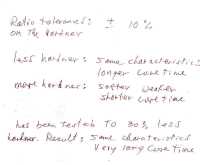 Ratio tolerance: ± 10 %
on The hardner
less hardner: same characteristics
longer cure time
more hardner: softer weaker
shorter cure time
has been tested TO 30%, less
hardner. Result: same charateristics
Very long cure time